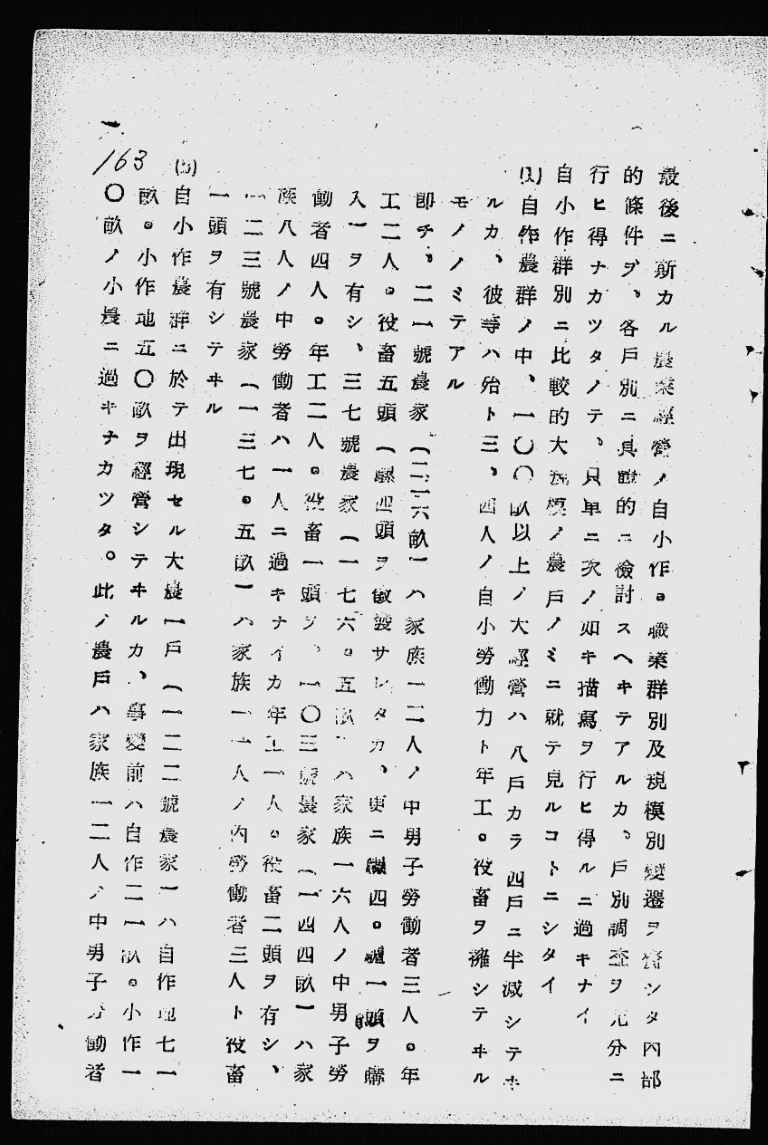 最後ニ斯カル農業經營ノ自小作。職業群別及規模別變遷ヲ齎シタ內部
的條件ヲ、各戶別ニ具體的ニ檢討スヘキテアルカ、戶別調查ヲ充分ニ
行ヒ得ナカツタノテ、只單ニ次ノ如キ描寫ヲ行ヒ得ルニ過キナイ
自小作群別ニ比較的大規模ノ農戶ノミニ就テ見ルコトニシタイ
(1)自作農群ノ中、一〇〇畝以上ノ大經營ハ八戶カラ四戶ニ半減シテヰ
ルカ、彼等ハ殆ト三、四人ノ自小勞働力ト年工。役畜ヲ擁シテヰル
モノノミテアル
卽チ、二一號農家(二二六畝)ハ家族一二人ノ中男子勞働者三人。年
工二人。役畜五頭(騾四頭ヲ徵發サレタカ、更ニ騾四。驢一頭ヲ購
入)ヲ有シ、三七號農家(一七六。五畝)ハ家族一六人ノ中男子勞
働者四人。年工二人。役畜一頭ヲ、一〇三號農家(一四四畝)ハ家
族八人ノ中勞働者ハ一人ニ過キナイカ年工一人。役畜二頭ヲ有シ、
一二三號農家(一三七。五畝)ハ家族一一人ノ內勞働者三人ト役畜
一頭ヲ有シテヰル
自小作農群ニ於テ出現セル大農一戶(一二二號農家)ハ自作地七一
畝。小作地五〇畝ヲ經營シテヰルカ、事變前ハ自作二一畝。小作一
〇畝ノ小農ニ過キナカツタ。此ノ農戶ハ家族一二人ノ中男子勞働者
163